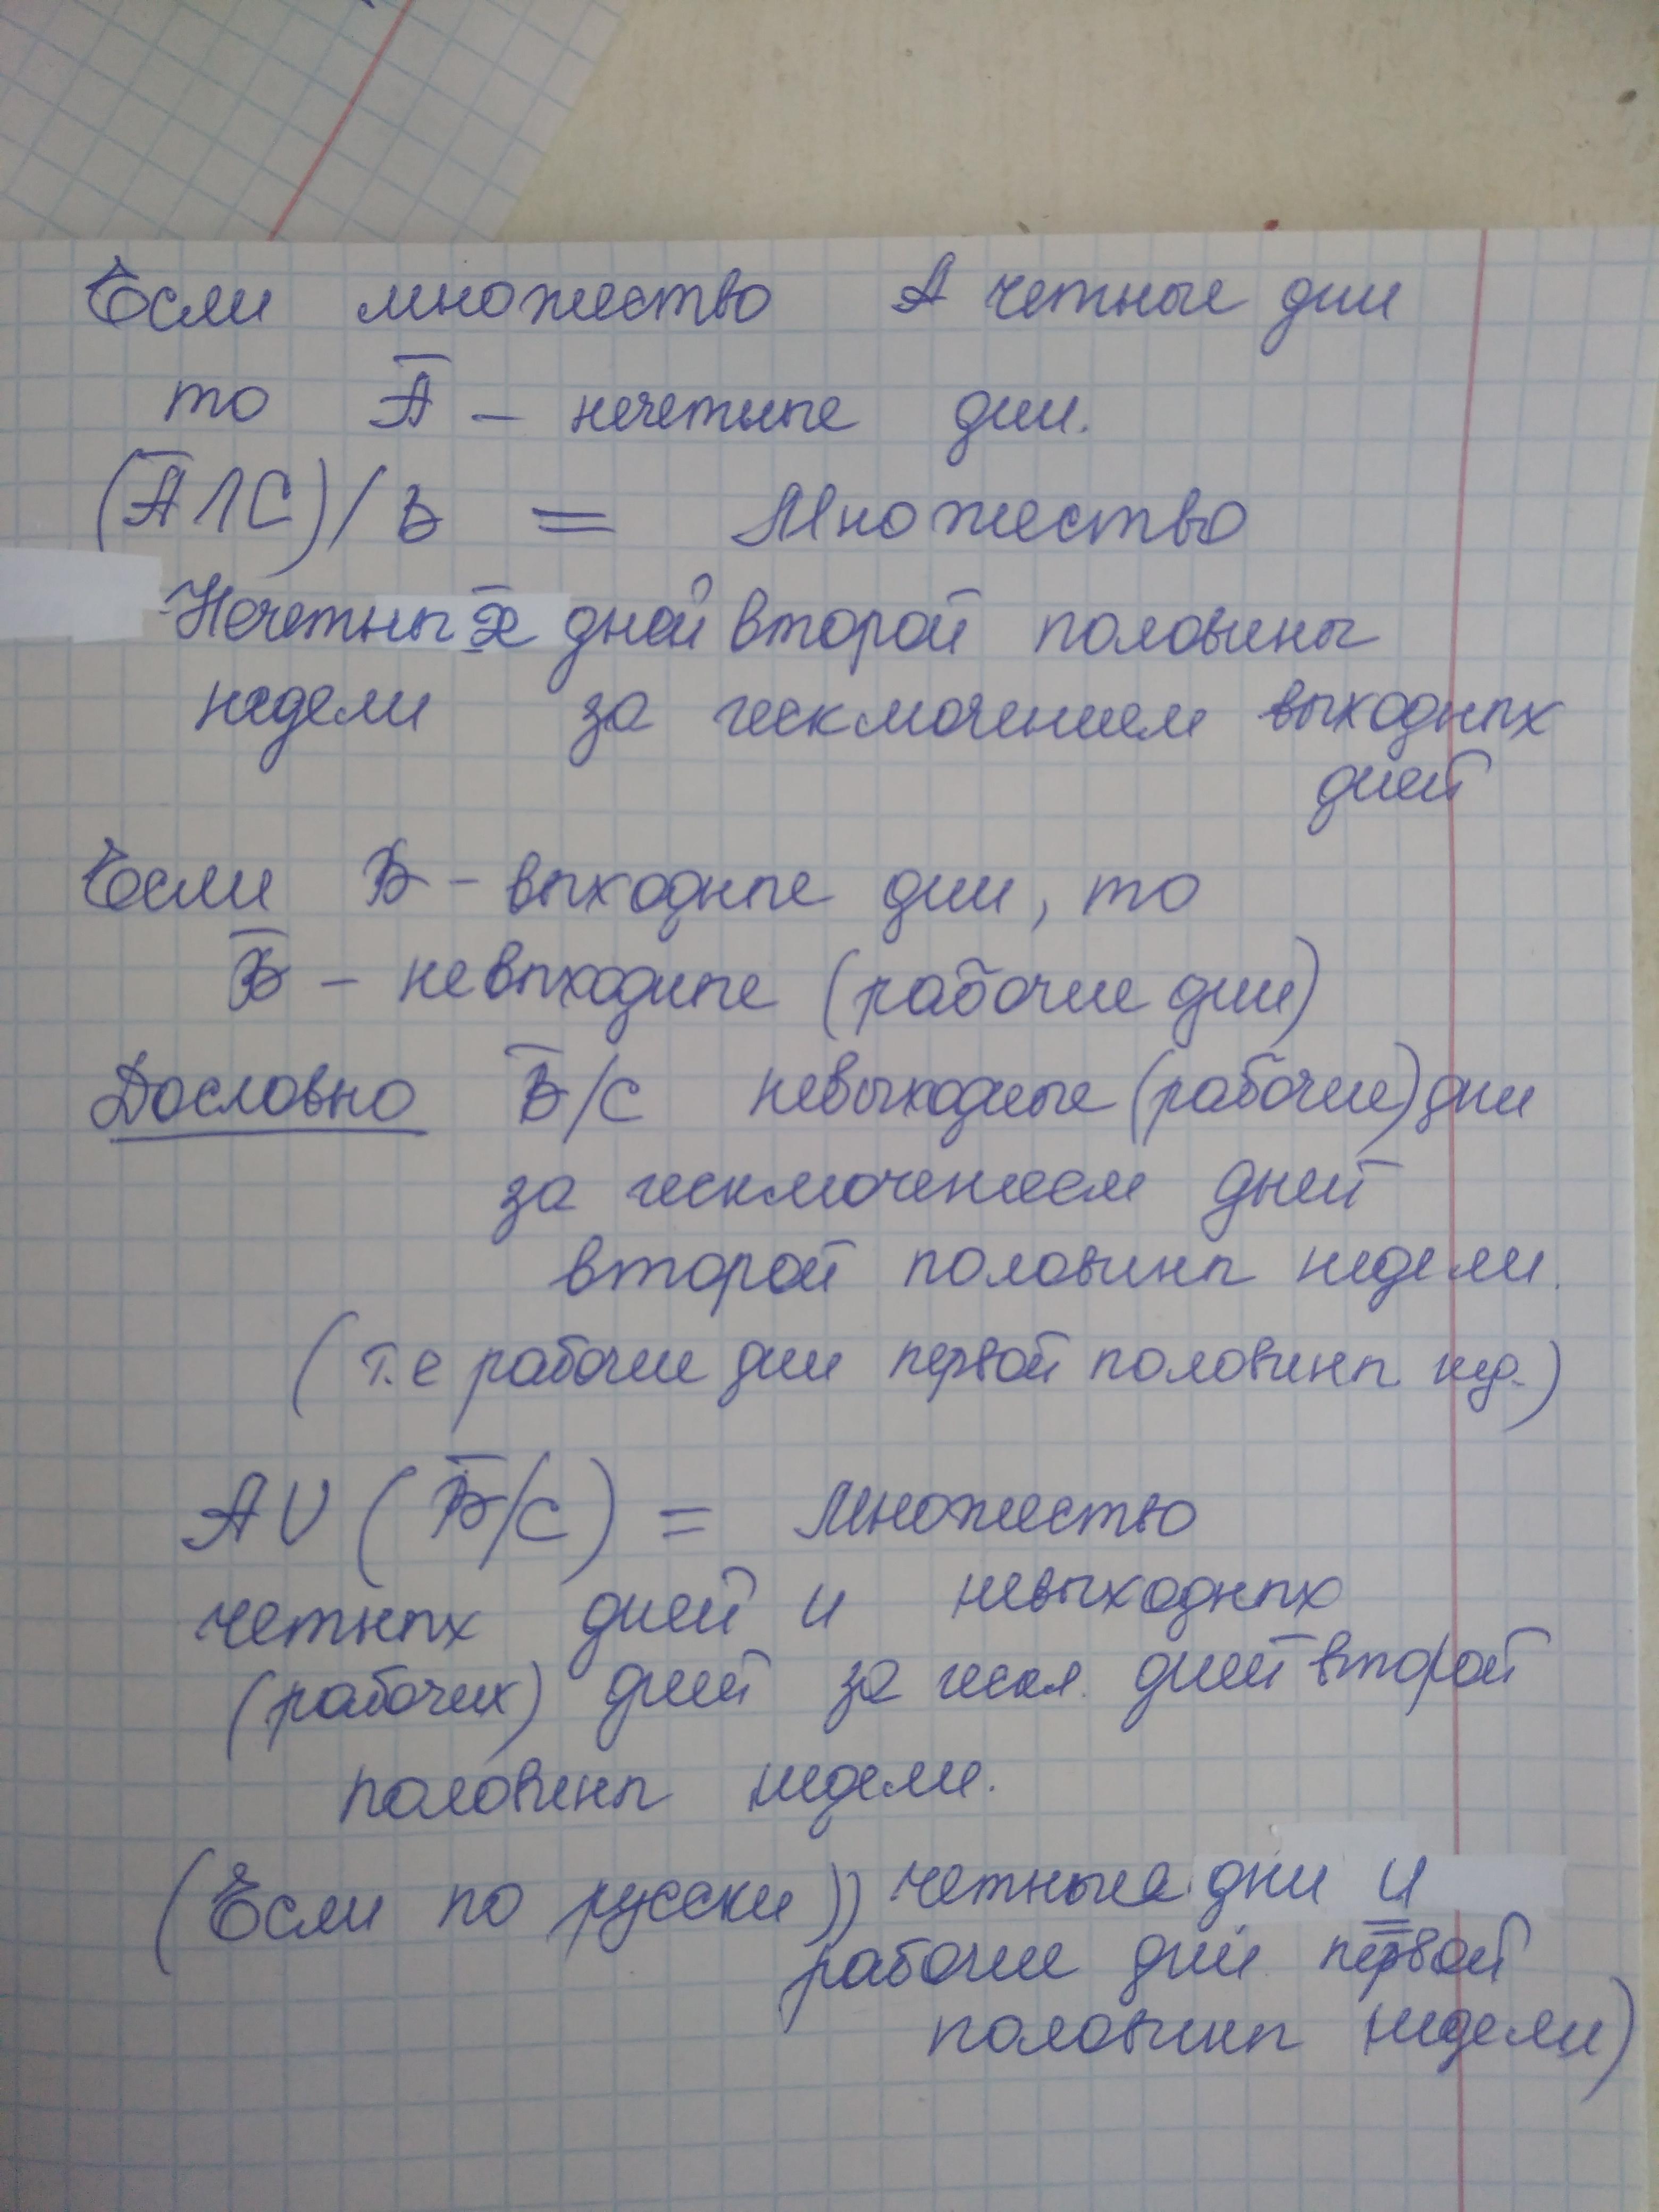 Если множество А четные дни
то А̅ – нечетные дни.
(А̅ ∩ С) / В = Множество
Нечетных дней второй половины
недели за исключением выходных
дней
Если В – выходные дни, то
В̅ – невыходные (рабочие дни)
Дословно В̅/С невыходные (рабочие) дни
за исключением дней
второй половины недели.
(т.е рабочие дни первой половины нед.)
А ∪ (В̅/С) = Множество
четных дней и невыходных
(рабочих) дней за искл. дней второй
половины недели.
(Если по русски)) четные дни и
рабочие дни первой
половины недели)